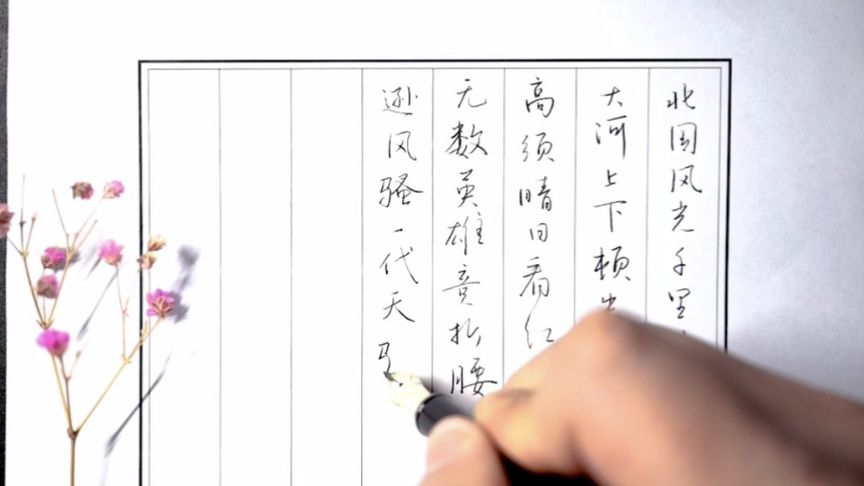 北国风光千里
大河上下顿
高须晴日看红
无数英雄竞折腰
逊风骚一代天